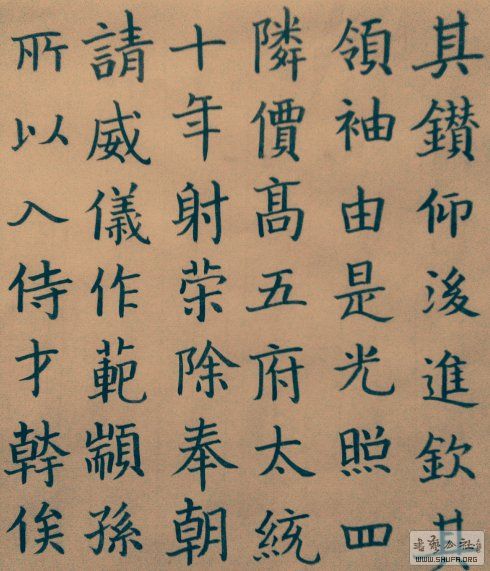 其鑽仰後進欽其
領袖由是光照四
隣價髙五府太統
十年射荣除奉朝
請威儀作範顓孫
所以入侍才幹俟
书艺公社
WWW.SHUFA.ORG